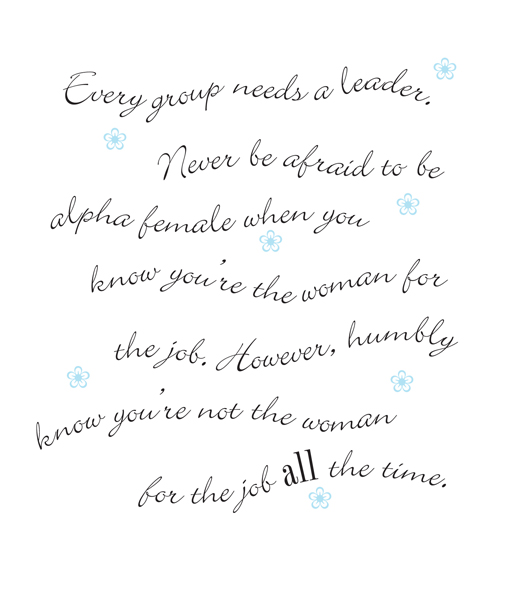 Every group needs a leader.
Never be afraid to be
alpha female when you
know you're the woman for
the job. However, humbly
know you're not the woman
for the job all the time.